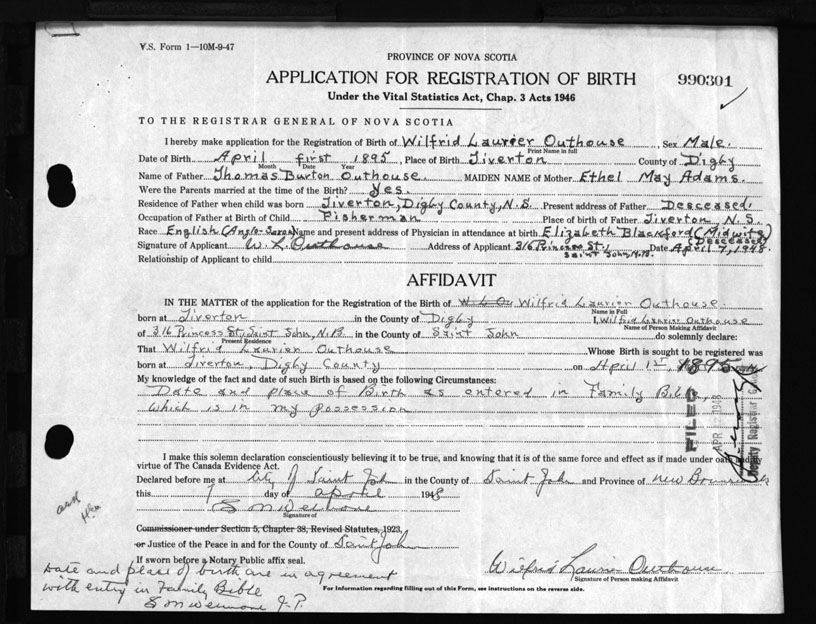 V.S. Form 1—10M-9-47
PROVINCE OF NOVA SCOTIA
APPLICATION FOR REGISTRATION OF BIRTH 990301
Under the Vital Statistics Act, Chap. 3 Acts 1946
TO THE REGISTRAR GENERAL OF NOVA SCOTIA
I hereby make application for the Registration of Birth of Wilfrid Laurier Outhouse, Sex Male.
Print Name in full
Date of Birth April first 1895, Place of Birth Tiverton County of Digby
Month Date Year
Name of Father Thomas Burton Outhouse. MAIDEN NAME of Mother Ethel May Adams.
Were the Parents married at the time of the Birth? Yes.
Residence of Father when child was born Tiverton, Digby County, N.S. Present address of Father Desceased.
Occupation of Father at Birth of Child Fisherman Place of birth of Father Tiverton, N.S.
Race English (Anglo-Saxon) Name and present address of Physician in attendance at birth Elizabeth Blackford (Midwife)
(Desceased)
Signature of Applicant W. L. Outhouse Address of Applicant 316 Princess St., Date April 7, 1948.
Saint John, N.B.
Relationship of Applicant to child
AFFIDAVIT
IN THE MATTER of the application for the Registration of the Birth of W L Ou Wilfrid Laurier Outhouse
Name in Full
born at Tiverton in the County of Digby I, Wilfrid Laurier Outhouse
Name of Person Making Affidavit
of 316 Princess St, Saint John, N.B. in the County of Saint John do solemnly declare:
Present Residence
That Wilfrid Laurier Outhouse Whose Birth is sought to be registered was
born at Tiverton, Digby County on April 1st 1895
My knowledge of the fact and date of such Birth is based on the following Circumstances:
Date and place of Birth as entered in Family Bible,
which is in my possession
FILED
APR 1948
Deputy Registrar G
I make this solemn declaration conscientiously believing it to be true, and knowing that it is of the same force and effect as if made under oath and by
virtue of The Canada Evidence Act.
Declared before me at City of Saint John in the County of Saint John and Province of New Brunswick
this 7 day of April 1948
Signature of
Commissioner under Section 5, Chapter 38, Revised Statutes, 1923,
or Justice of the Peace in and for the County of Saint John
If sworn before a Notary Public affix seal.
Wilfrid Laurier Outhouse
Signature of Person making Affidavit
Date and place of birth are in agreement
with entry in Family Bible
J.P.
For Information regarding filling out of this Form, see instructions on the reverse side.